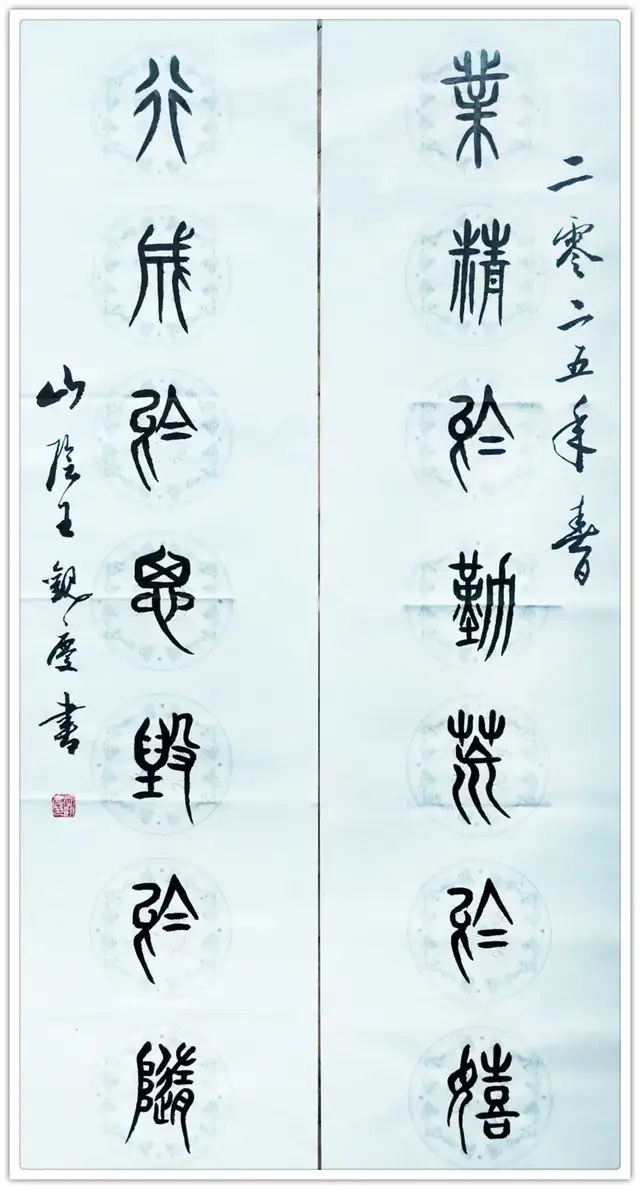 二零二五年春
業精於勤荒於嬉
行成於思毀於隨
山陰王觀書